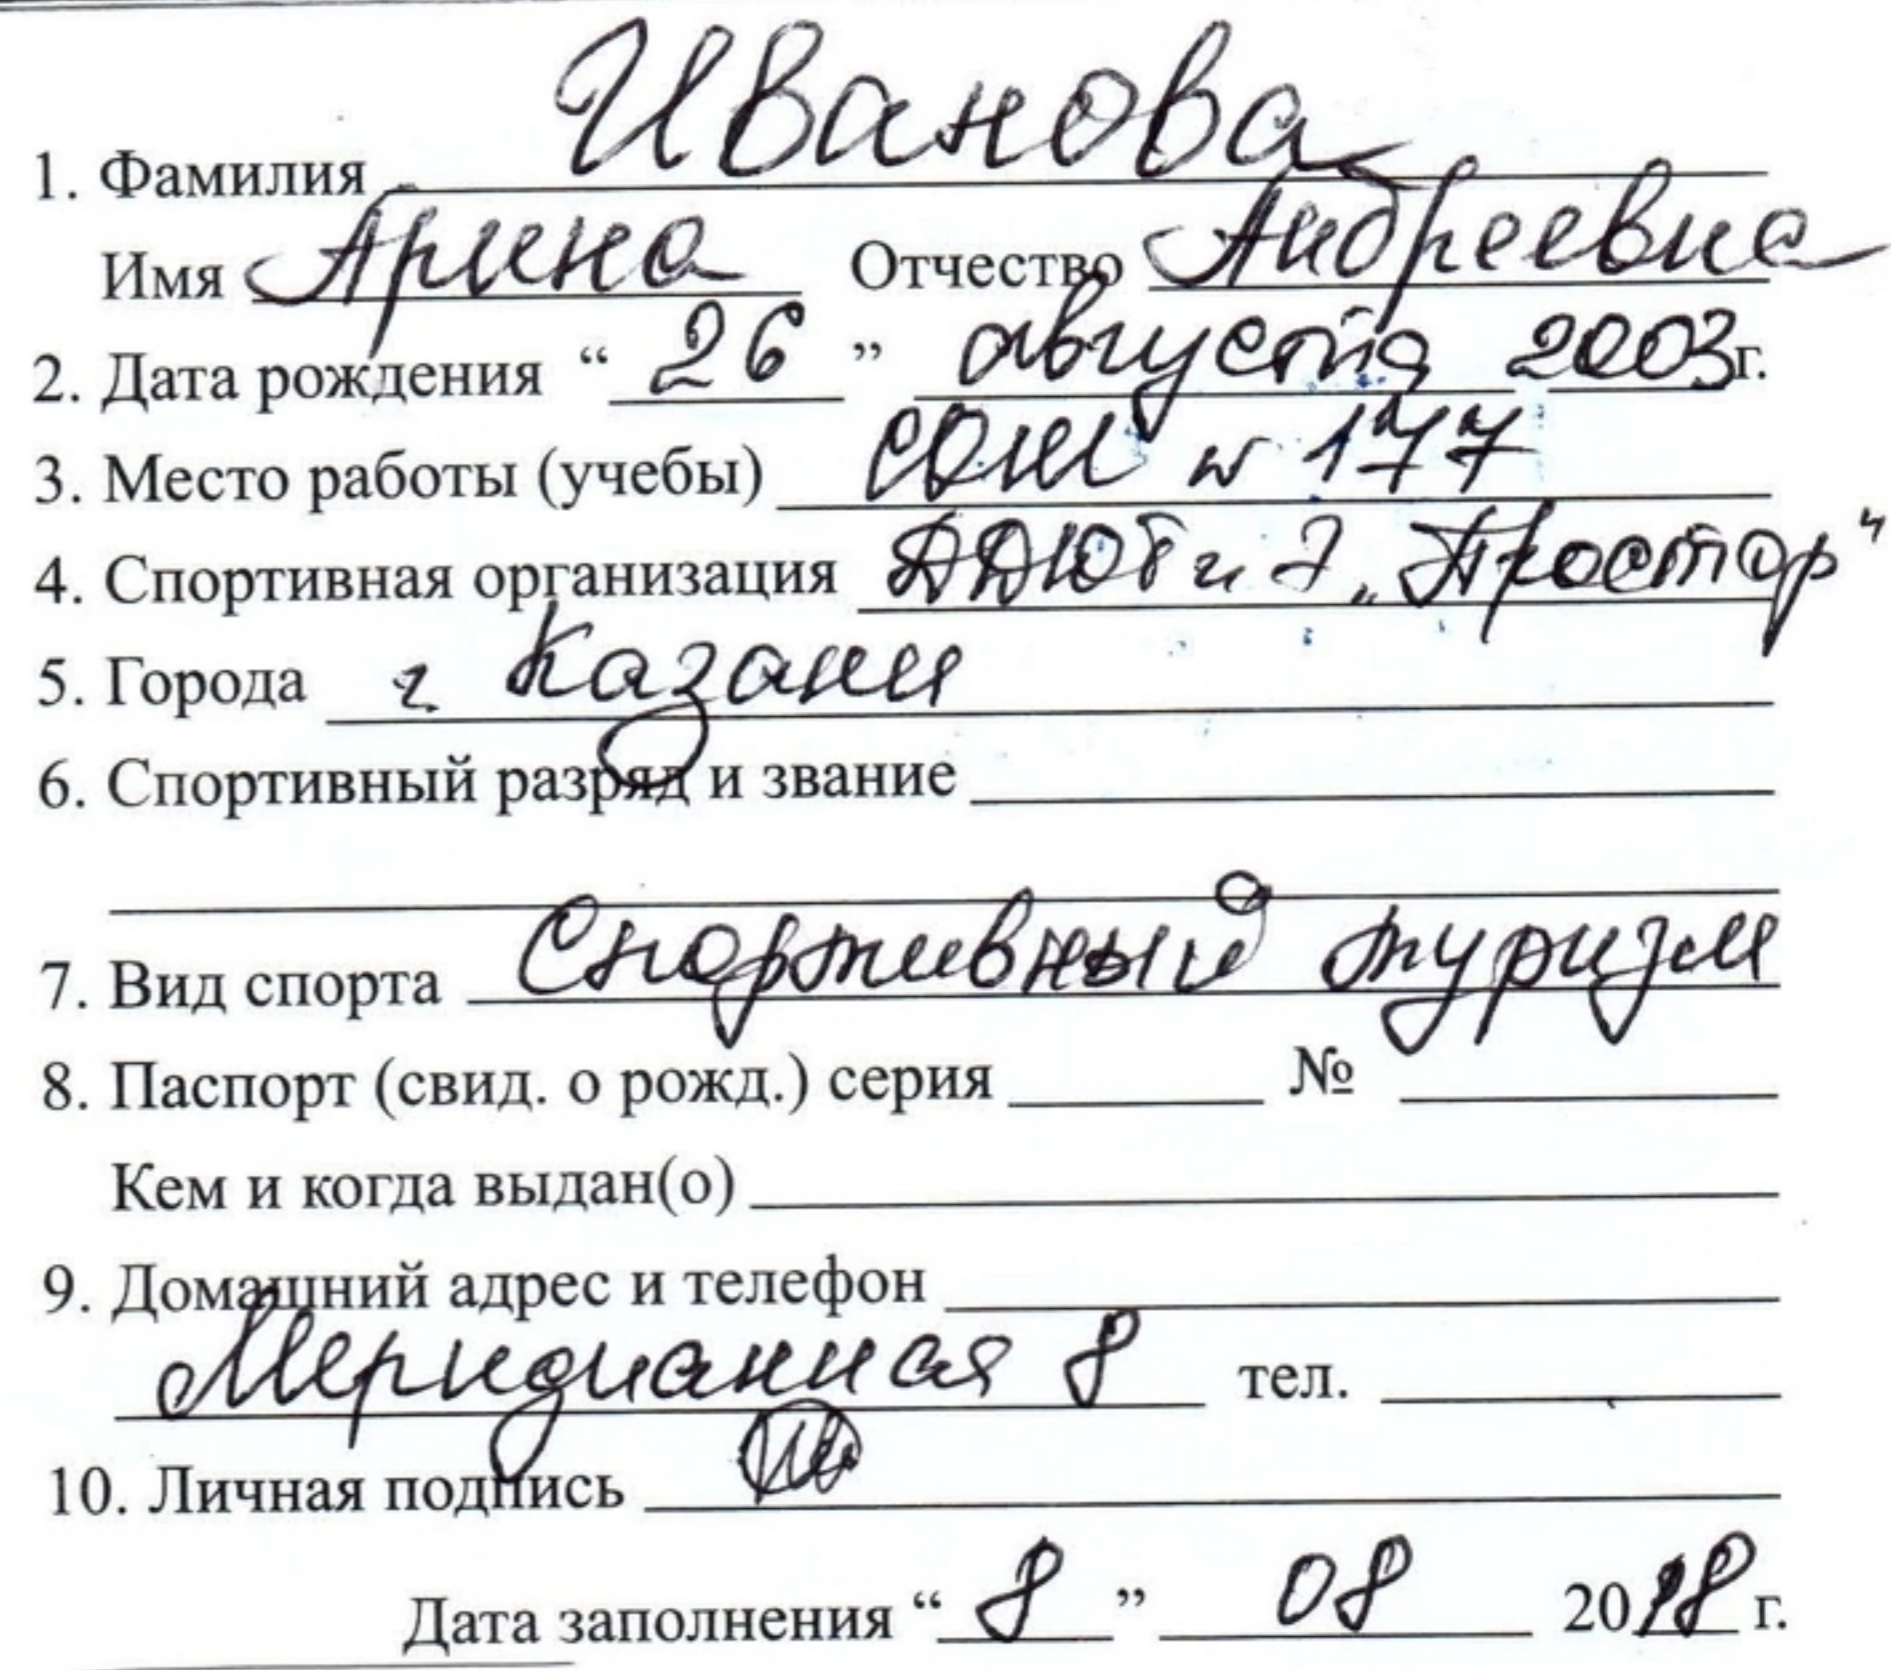 1. Фамилия Иванова
Имя Арина Отчество Андреевна
2. Дата рождения “ 26 ” августа 2003 г.
3. Место работы (учебы) СОШ N 177
4. Спортивная организация ДДЮТ и Э „Простор“
5. Города г. Казани
6. Спортивный разряд и звание
7. Вид спорта Спортивный туризм
8. Паспорт (свид. о рожд.) серия № 
Кем и когда выдан(о)
9. Домашний адрес и телефон
Меридианная 8 тел.
10. Личная подпись
Дата заполнения “ 8 ” 08 2018 г.